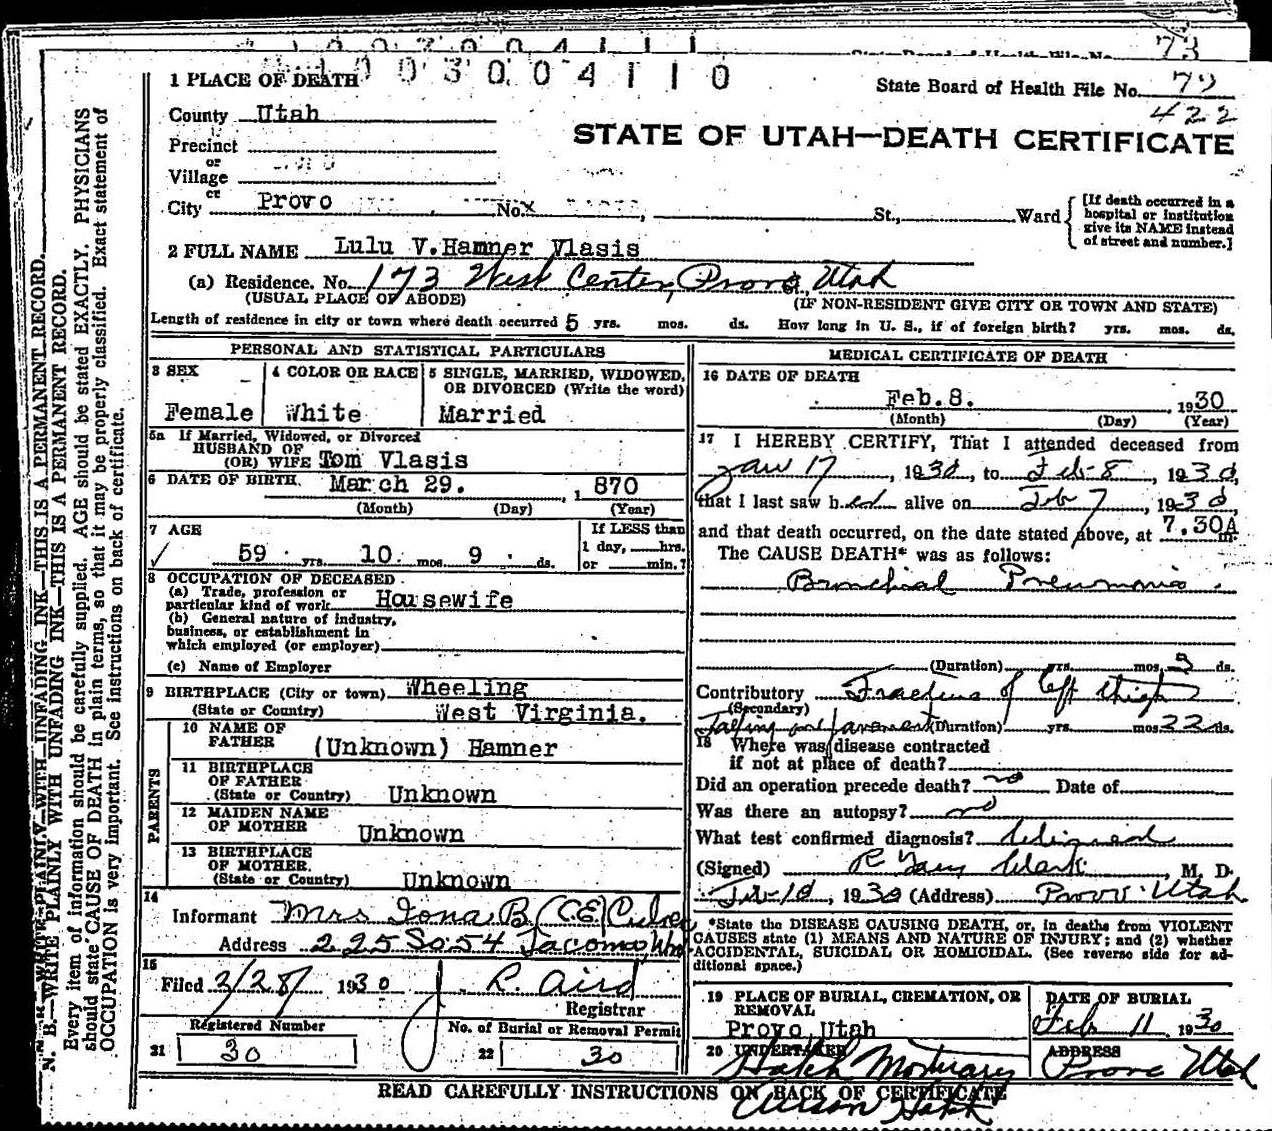 1 0 0 3 0 0 4 1 1 0
1 PLACE OF DEATH
State Board of Health File No. 72
422
County Utah
STATE OF UTAH—DEATH CERTIFICATE
Precinct
or
Village
or
City Provo No. St., Ward
[If death occurred in a hospital or institution give its NAME instead of street and number.]
2 FULL NAME Lulu V. Hamner Vlasis
(a) Residence. No. 173 West Center, Provo, Utah
(USUAL PLACE OF ABODE) (IF NON-RESIDENT GIVE CITY OR TOWN AND STATE)
Length of residence in city or town where death occurred 5 yrs. mos. ds. How long in U. S., if of foreign birth? yrs. mos. ds.
PERSONAL AND STATISTICAL PARTICULARS
3 SEX
Female
4 COLOR OR RACE
White
5 SINGLE, MARRIED, WIDOWED, OR DIVORCED (Write the word)
Married
5a If Married, Widowed, or Divorced
HUSBAND OF
(OR) WIFE Tom Vlasis
6 DATE OF BIRTH March 29. , 1870
(Month) (Day) (Year)
7 AGE
59 yrs. 10 mos. 9 ds.
If LESS than
1 day, hrs.
or min.?
8 OCCUPATION OF DECEASED
(a) Trade, profession or
particular kind of work Housewife
(b) General nature of industry,
business, or establishment in
which employed (or employer)
(c) Name of Employer
9 BIRTHPLACE (City or town) Wheeling
(State or Country) West Virginia.
PARENTS
10 NAME OF
FATHER (Unknown) Hamner
11 BIRTHPLACE
OF FATHER
(State or Country) Unknown
12 MAIDEN NAME
OF MOTHER Unknown
13 BIRTHPLACE
OF MOTHER.
(State or Country) Unknown
14
Informant Mrs Iona B (C.E.) Culver
Address 225 So 54 Tacoma, Wn
15
Filed 2/28/ 1930 J. R. Aird
Registrar
Registered Number
21 30
No. of Burial or Removal Permit
22 30
MEDICAL CERTIFICATE OF DEATH
16 DATE OF DEATH
Feb. 8. , 1930
(Month) (Day) (Year)
17 I HEREBY CERTIFY, That I attended deceased from
Jan 17, 1930, to Feb-8, 1930,
that I last saw her alive on Feb 7, 1930,
and that death occurred, on the date stated above, at 7.30A m.
The CAUSE DEATH* was as follows:
Bronchial Pneumonia.
(Duration) yrs. mos. 3 ds.
Contributory Fracture of left thigh
(Secondary)
falling on pavement (Duration) yrs. mos. 22 ds.
18 Where was disease contracted
if not at place of death?
Did an operation precede death? no Date of
Was there an autopsy? no
What test confirmed diagnosis? Clinical
(Signed) Clark, M. D.
Feb-10, 1930 (Address) Provo Utah
*State the DISEASE CAUSING DEATH, or, in deaths from VIOLENT
CAUSES state (1) MEANS AND NATURE OF INJURY; and (2) whether
ACCIDENTAL, SUICIDAL OR HOMICIDAL. (See reverse side for ad-
ditional space.)
19 PLACE OF BURIAL, CREMATION, OR
REMOVAL
Provo, Utah
DATE OF BURIAL
Feb 11 1930
20 UNDERTAKER
Hatch Mortuary
ADDRESS
Provo Utah
READ CAREFULLY INSTRUCTIONS ON BACK OF CERTIFICATE
N. B.—WRITE PLAINLY WITH UNFADING INK—THIS IS A PERMANENT RECORD.
Every item of information should be carefully supplied. AGE should be stated EXACTLY. PHYSICIANS
should state CAUSE OF DEATH in plain terms, so that it may be properly classified. Exact statement of
OCCUPATION is very important. See instructions on back of certificate.